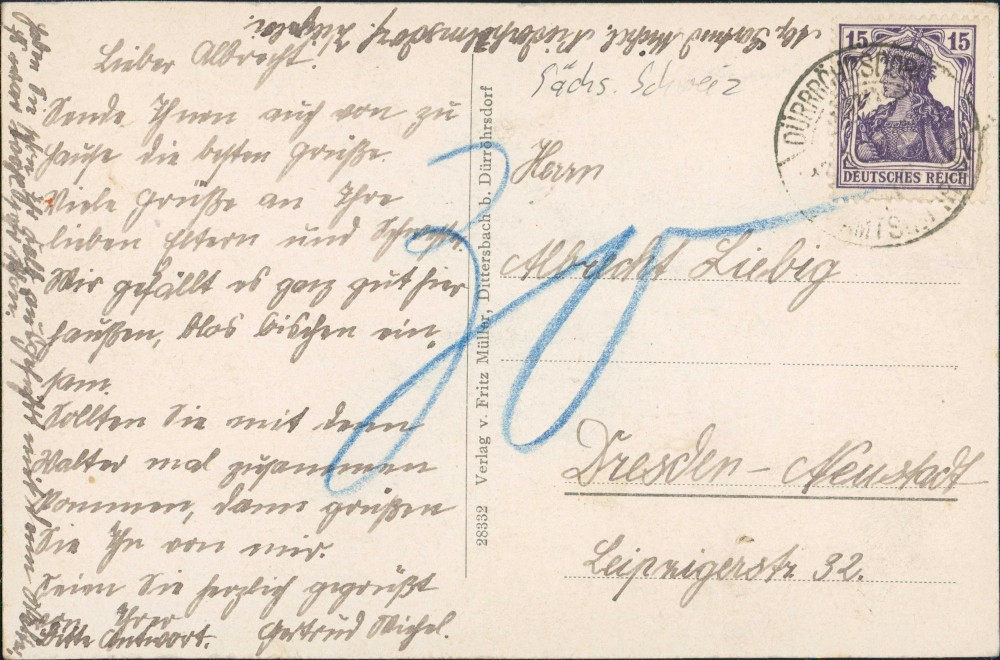 Lieber Albrecht!
Sende Ihnen auch von zu
Hause die besten Grüße.
Viele Grüße an Ihre
lieben Eltern und
Wir gefällt es ganz gut hier
haußen, blos bischen ein-
sam.
Sollten Sie mit dem
Walter mal zusammen
kommen, dann grüßen
Sie Ihn von mir.
Seien Sie herzlich gegrüßt
von Ihrer
Gertrud Michel.
Bitte Antwort.
28332 Verlag v. Fritz Müller, Dittersbach b. Dürröhrsdorf
Abs. Gertrud Michel
Sächs. Schweiz
15 15
DEUTSCHES REICH
DÜRRRÖHRSDORF
Herrn
Albrecht Liebig
Dresden-Neustadt
Leipzigerstr 32.